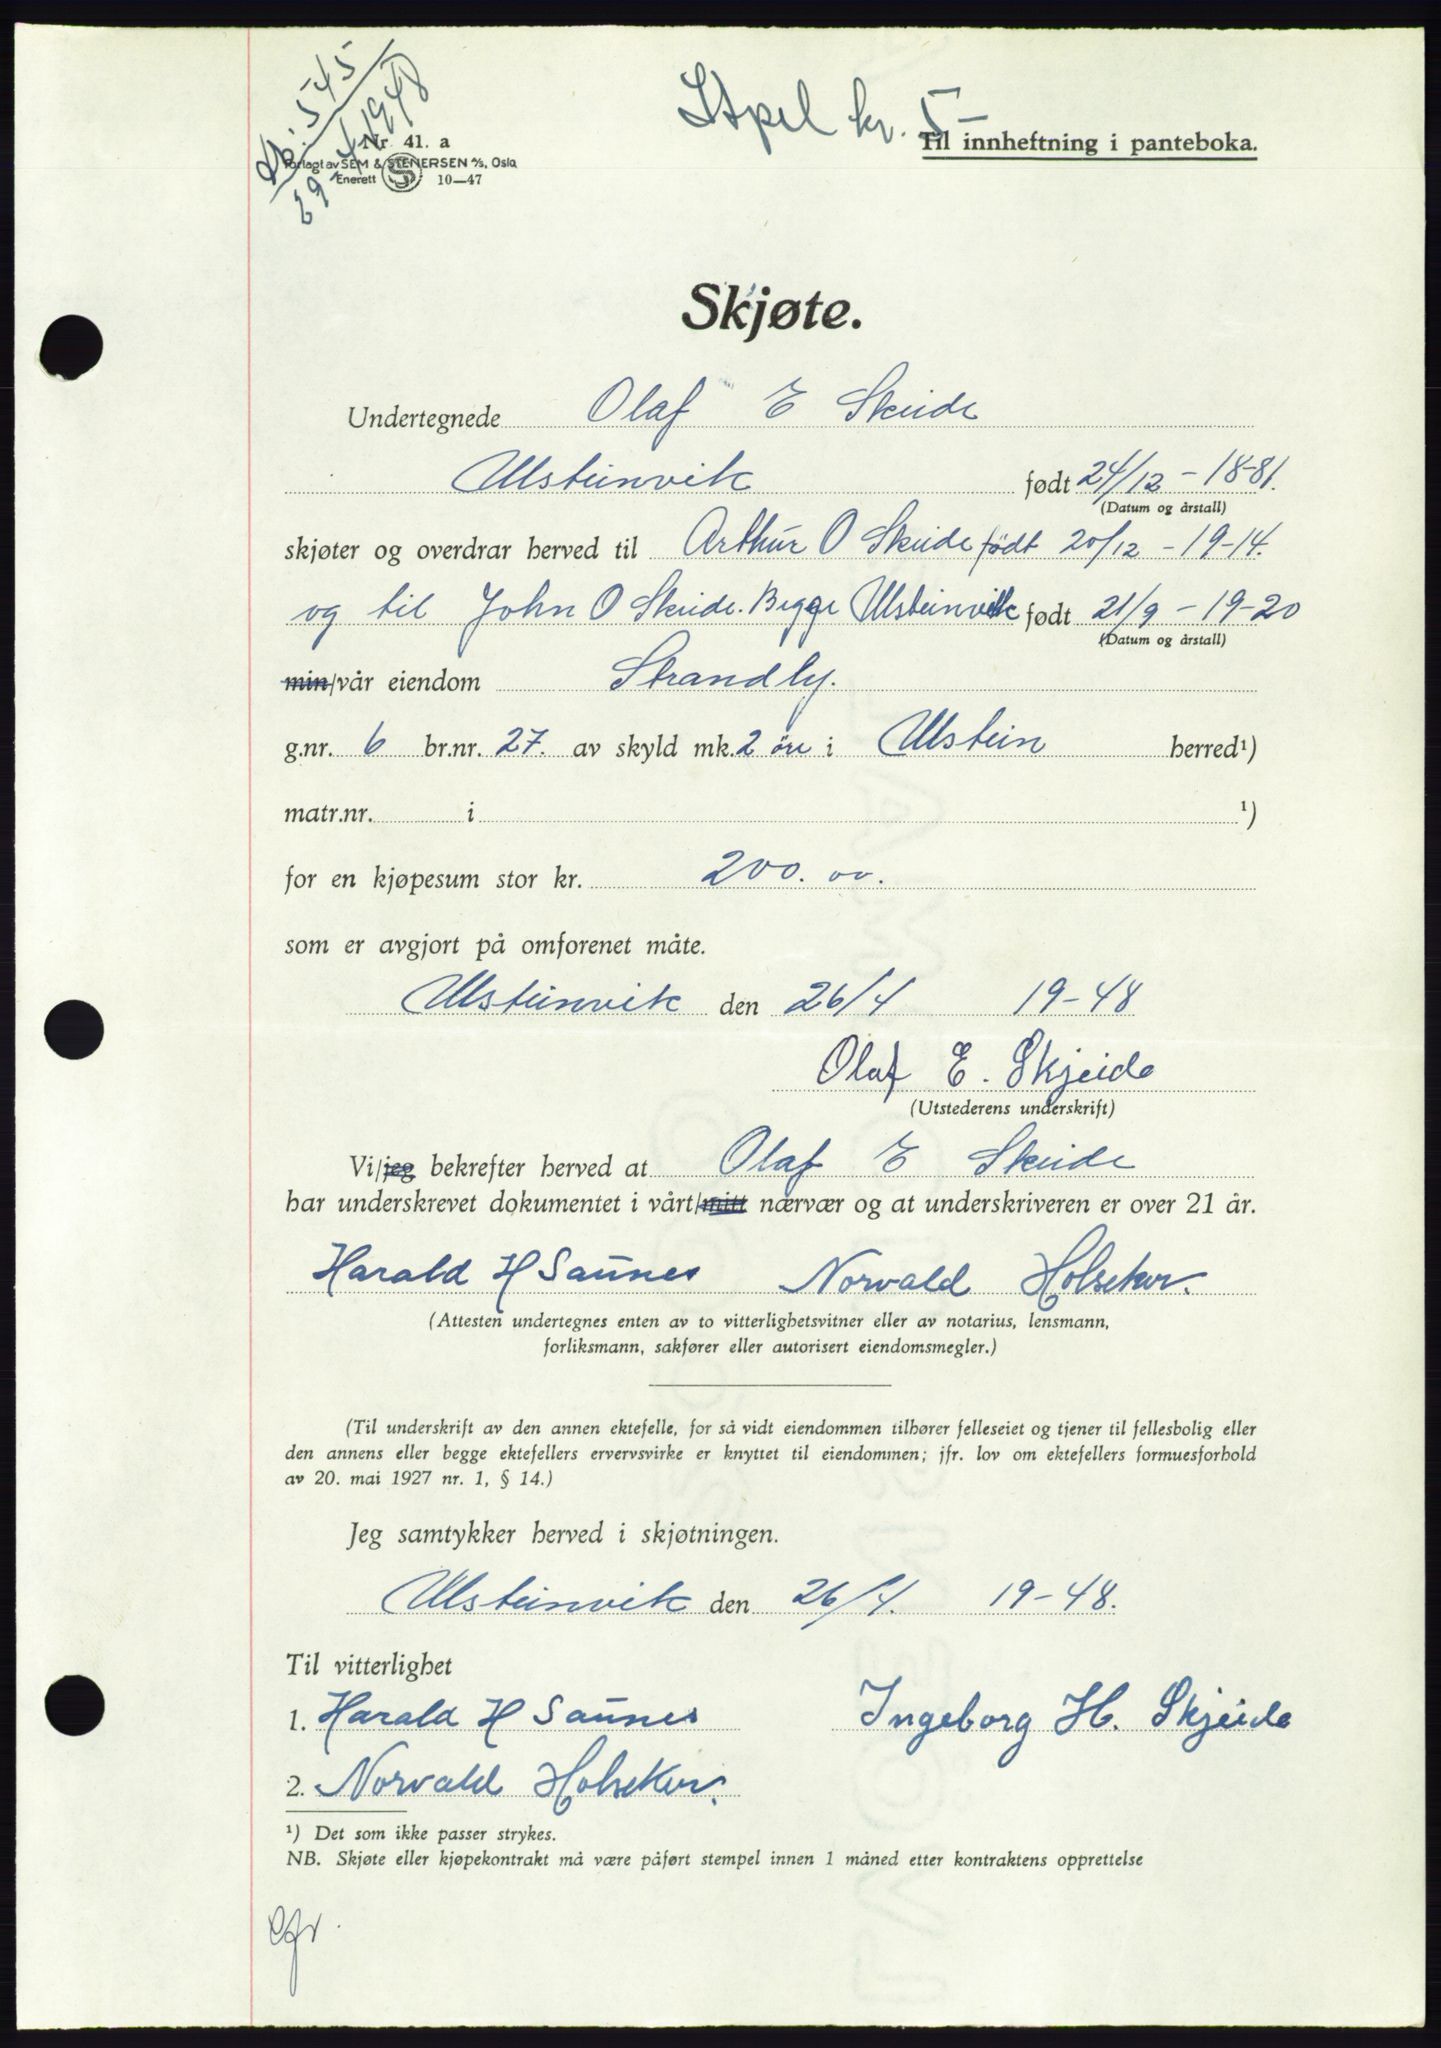 Nr. 545
29-4-1948
Stpel kr. 5-
Nr. 41. a
Til innheftning i panteboka.
Forlagt av SEM & STENERSEN A/S, Oslo
Enerett S 10—47
Skjøte.
Undertegnede Olaf E Skeide
Ulsteinvik født 24/12 - 18-81.
(Datum og årstall)
skjøter og overdrar herved til Arthur O Skeide født 20/12 - 19-14.
og til John O Skeide. Begge Ulsteinvik født 21/9 - 19-20
(Datum og årstall)
min/vår eiendom Strandly.
g.nr. 6 br.nr. 27. av skyld mk. 2 øre i Ulstein herred¹)
matr.nr. i ¹)
for en kjøpesum stor kr. 200.00.
som er avgjort på omforenet måte.
Ulsteinvik den 26/4 19-48
Olaf E. Skjeide
(Utstederens underskrift)
Vi/jeg bekrefter herved at Olaf E Skeide
har underskrevet dokumentet i vårt/mitt nærvær og at underskriveren er over 21 år.
Harald H Saunes Norvald Holseker.
(Attesten undertegnes enten av to vitterlighetsvitner eller av notarius, lensmann,
forliksmann, sakfører eller autorisert eiendomsmegler.)
(Til underskrift av den annen ektefelle, for så vidt eiendommen tilhører felleseiet og tjener til fellesbolig eller
den annens eller begge ektefellers ervervsvirke er knyttet til eiendommen; jfr. lov om ektefellers formuesforhold
av 20. mai 1927 nr. 1, § 14.)
Jeg samtykker herved i skjøtningen.
Ulsteinvik den 26/4. 19-48.
Til vitterlighet
1. Harald H Saunes Ingeborg H. Skjeide
2. Norvald Holseker.
¹) Det som ikke passer strykes.
NB. Skjøte eller kjøpekontrakt må være påført stempel innen 1 måned etter kontraktens opprettelse